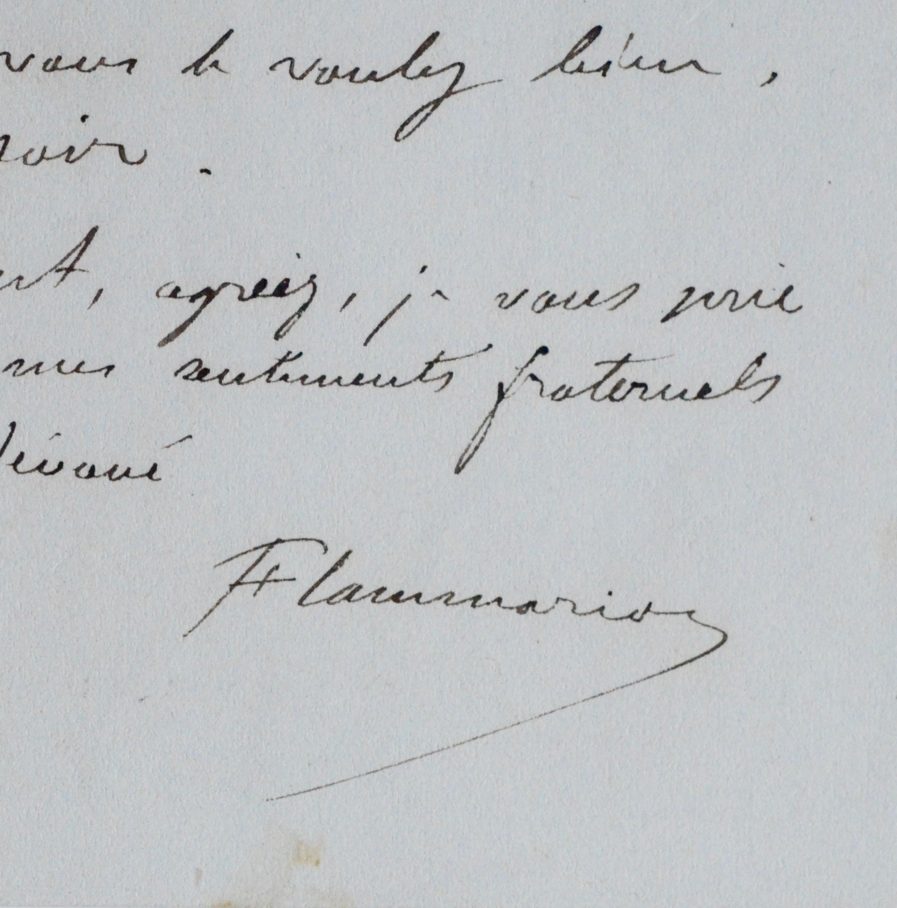 vous le voulez bien,
soir.
agréez, je vous prie
mes sentiments fraternels
dévoué
Flammarion